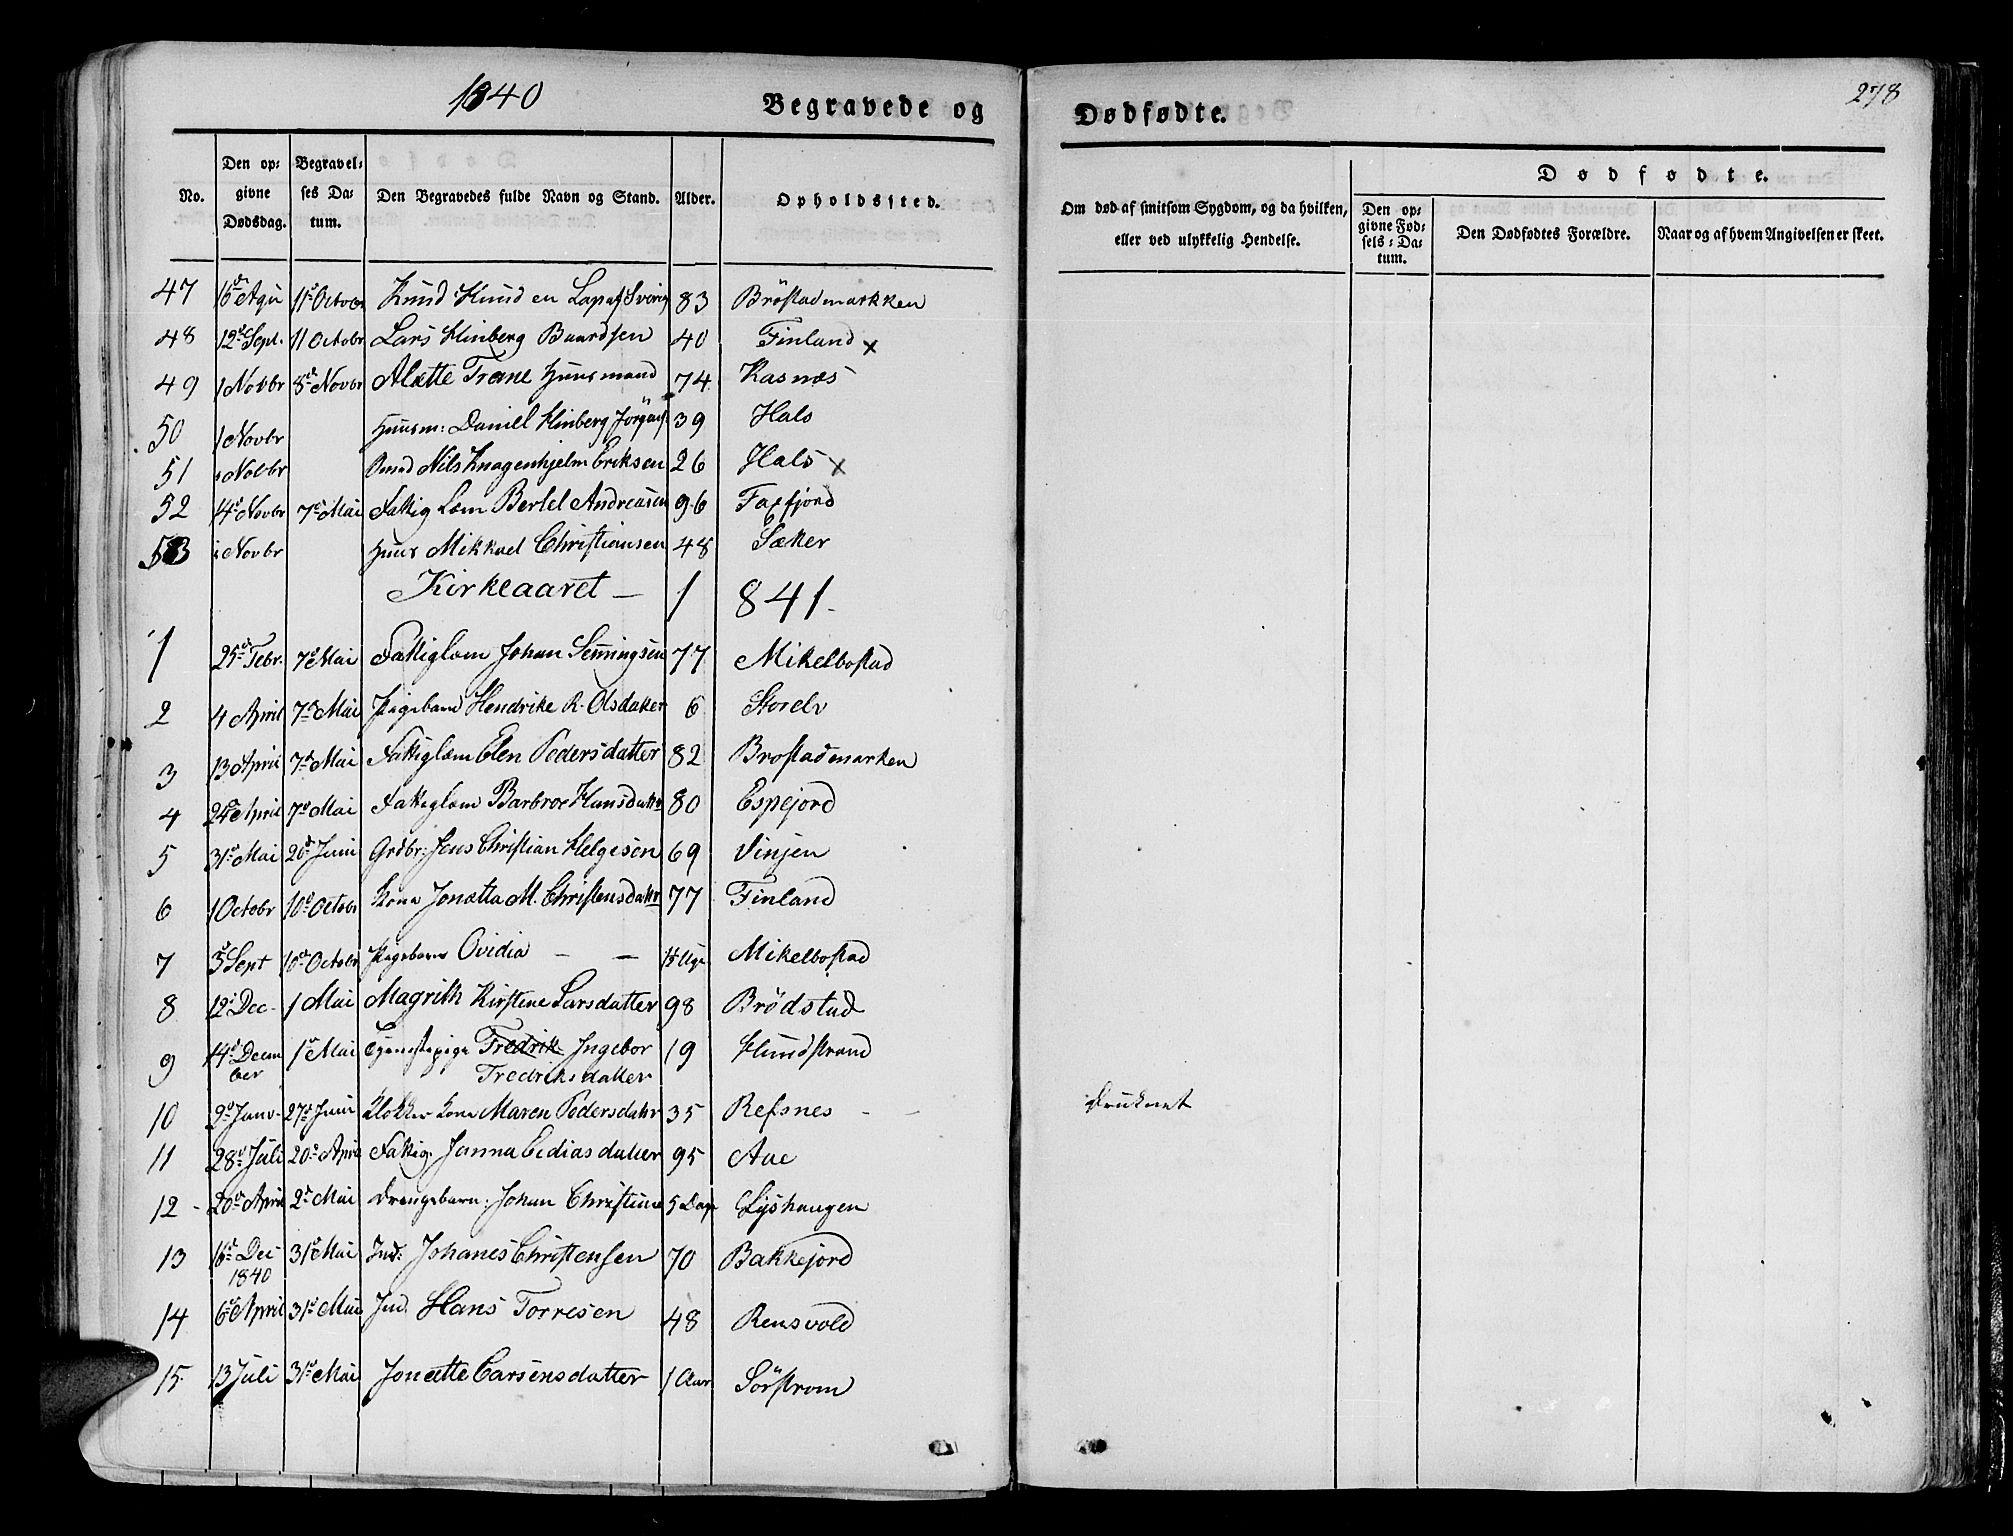 1840 Begravede og Dødfødte. 278
Dødfødte.
No. Den opgivne Dødsdag. Begravelses Datum. Den Begravedes fulde Navn og Stand. Alder. Opholdssted. Om død af smitsom Sygdom, og da hvilken, eller ved ulykkelig Hendelse. Den opgivne Fødsels-Datum. Den Dødfødtes Forældre. Naar og af hvem Angivelsen er skeet.
47 16de Agu 11te Octobr Knud Knud en Lap af Sverig 83 Bröstadmarkken
48 12te Sept. 11 Octobr Lars Hinberg Baardsen 40 Finland x
49 1 Novbr 8de Novbr Alette Trane Huusmand 74 Kasnæs
50 1 Novbr Huusm: Daniel Hinberg Jörgens 39 Hals
51 Novbr Nils Knagenhjelm Eriksen 26 Hals x
52 14de Novbr 7de Mai Fattig Lem Bertel Andreasen 96 Faxfjord
53 Novbr Huus Mikkael Christiansen 48 Sæker
Kirkeaaret — 1841.
1 25de Febr. 7de Mai Fattiglem Johan Henningsen 77 Mikelbostad
2 4 April 7de Mai Pigebarn Hendrike R. Olsdatter 6 Storelv
3 13 April 7de Mai Fattiglem Elen Pedersdatter 82 Brostadmarken
4 24de April 7de Mai Fattiglem Barbroe Hansdatter 80 Espejord
5 31te Mai 20de Juni Grdbr: Jens Christian Helgesen 69 Vinjen
6 1 Octobr 10de Octobr Kone Jonetta M. Christensdatr 77 Finland
7 5te Sept 10de Octobr Pigebarn Ovidia — — Uge Mikelbostad
8 12te Dec- 1 Mai Magrith Kirstine Larsdatter 98 Brödstad
9 14de Decem 1te Mai Tjenestepige Fredrik Ingebor 19 Hundstrand
ber Fredriksdatter
10 9de Janv- 27de Juni Klokker Kone Maren Pedersdatr 35 Refsnes - - Druknet
11 28de Juli 20de April Fattig. Janna Ediasdatter 95 Aae
12 20de April 2de Mai Drengebarn: Johan Christian 5 Dage Lyshaugen
13 16de Dec- 31te Mai Ind: Johanes Christensen 70 Bakkejord
1840
14 6te April 31te Mai Ind. Hans Torresen 48 Rensvold
15 13 Juli 31te Mai Jonette Larsensdatter 1 Aar Sörstrom